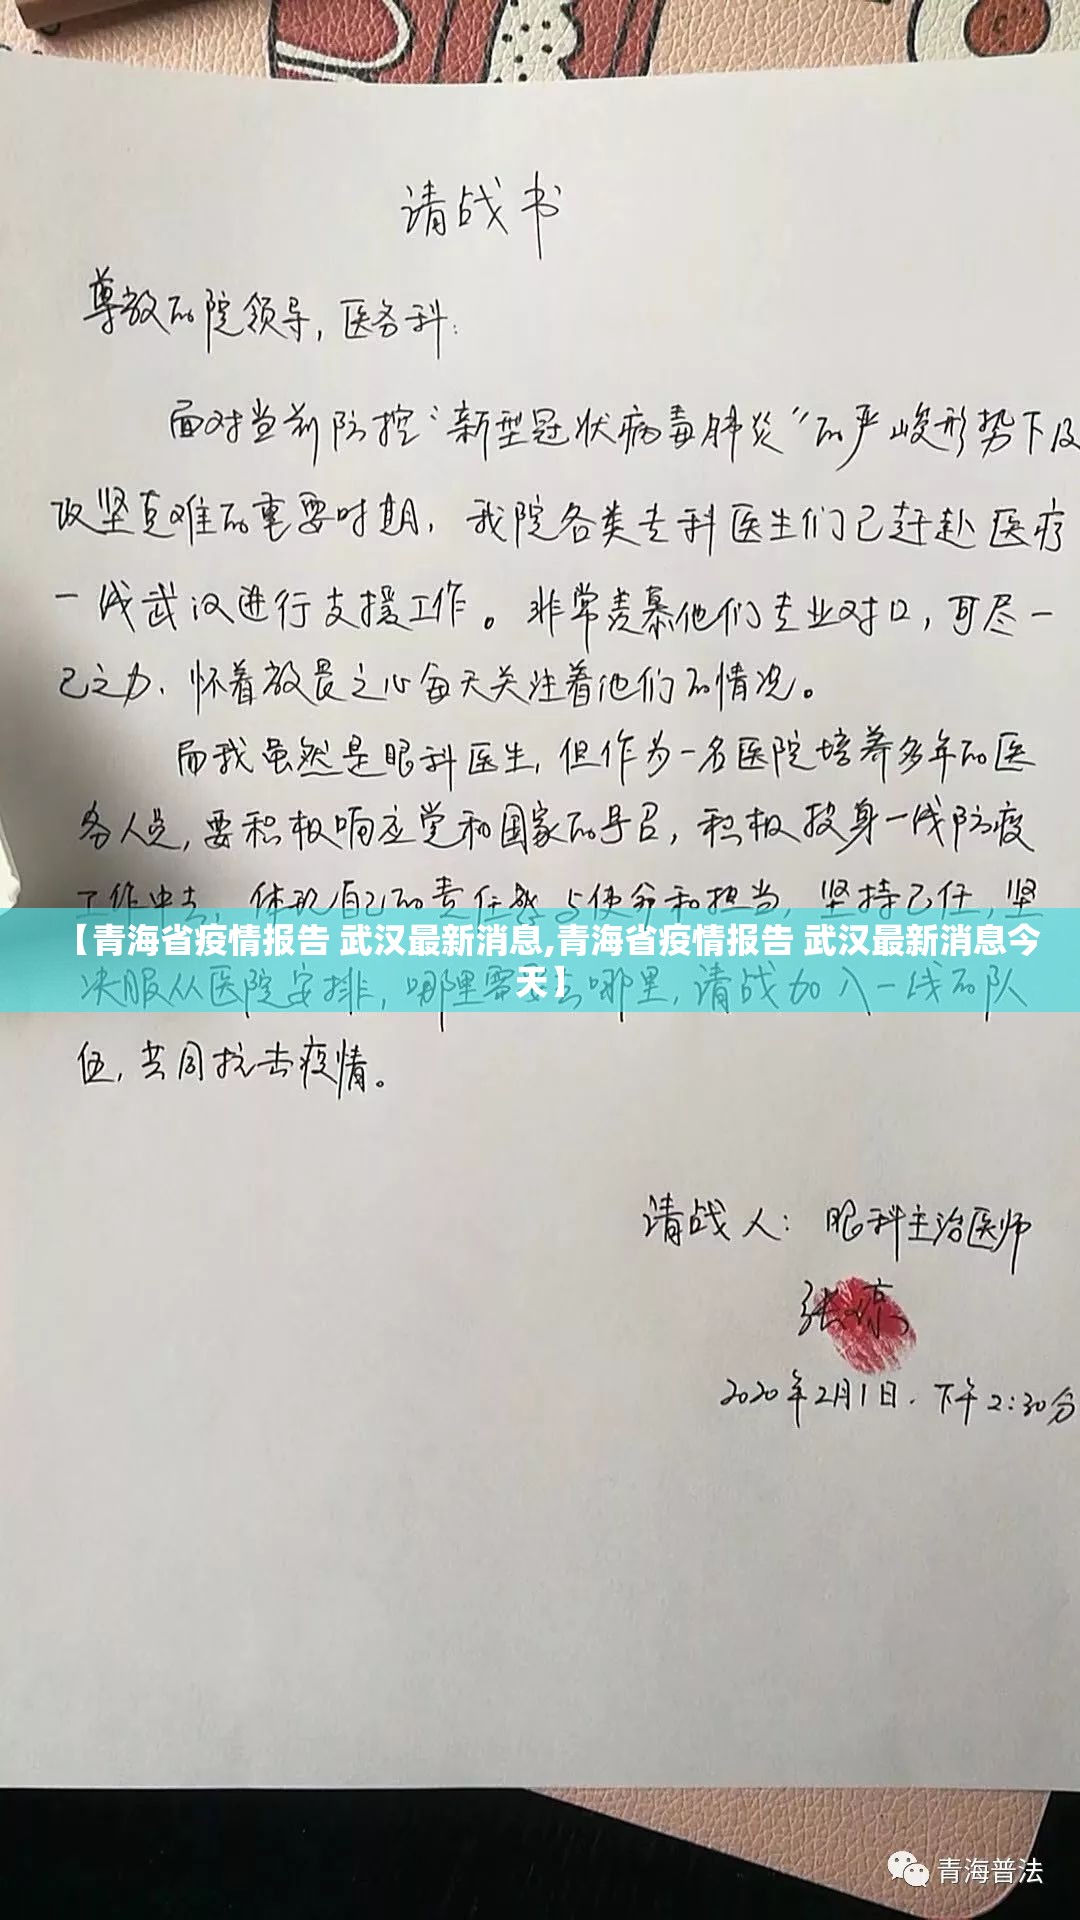 请战书
尊敬的院领导,医务科:
面对当前防控“新型冠状病毒肺炎”的严峻形势下及
攻坚克难的重要时期,我院各类专科医生们已赶赴医疗
一线武汉进行支援工作。非常羡慕他们专业对口,可尽一
己之力、怀着敬畏之心每天关注着他们的情况。
而我虽然是眼科医生,但作为一名医院培养多年的医
务人员,要积极响应党和国家的号召,积极投身一线防疫
工作中去,体现自己的责任感与使命和担当,坚持己任,坚
【青海省疫情报告 武汉最新消息,青海省疫情报告 武汉最新消息今
天】
决服从医院安排,哪里需要去哪里,请战加入一线的队
伍,共同抗击疫情。
请战人:眼科主治医师
张琼
2020年2月1日.下午2:30分
青海普法